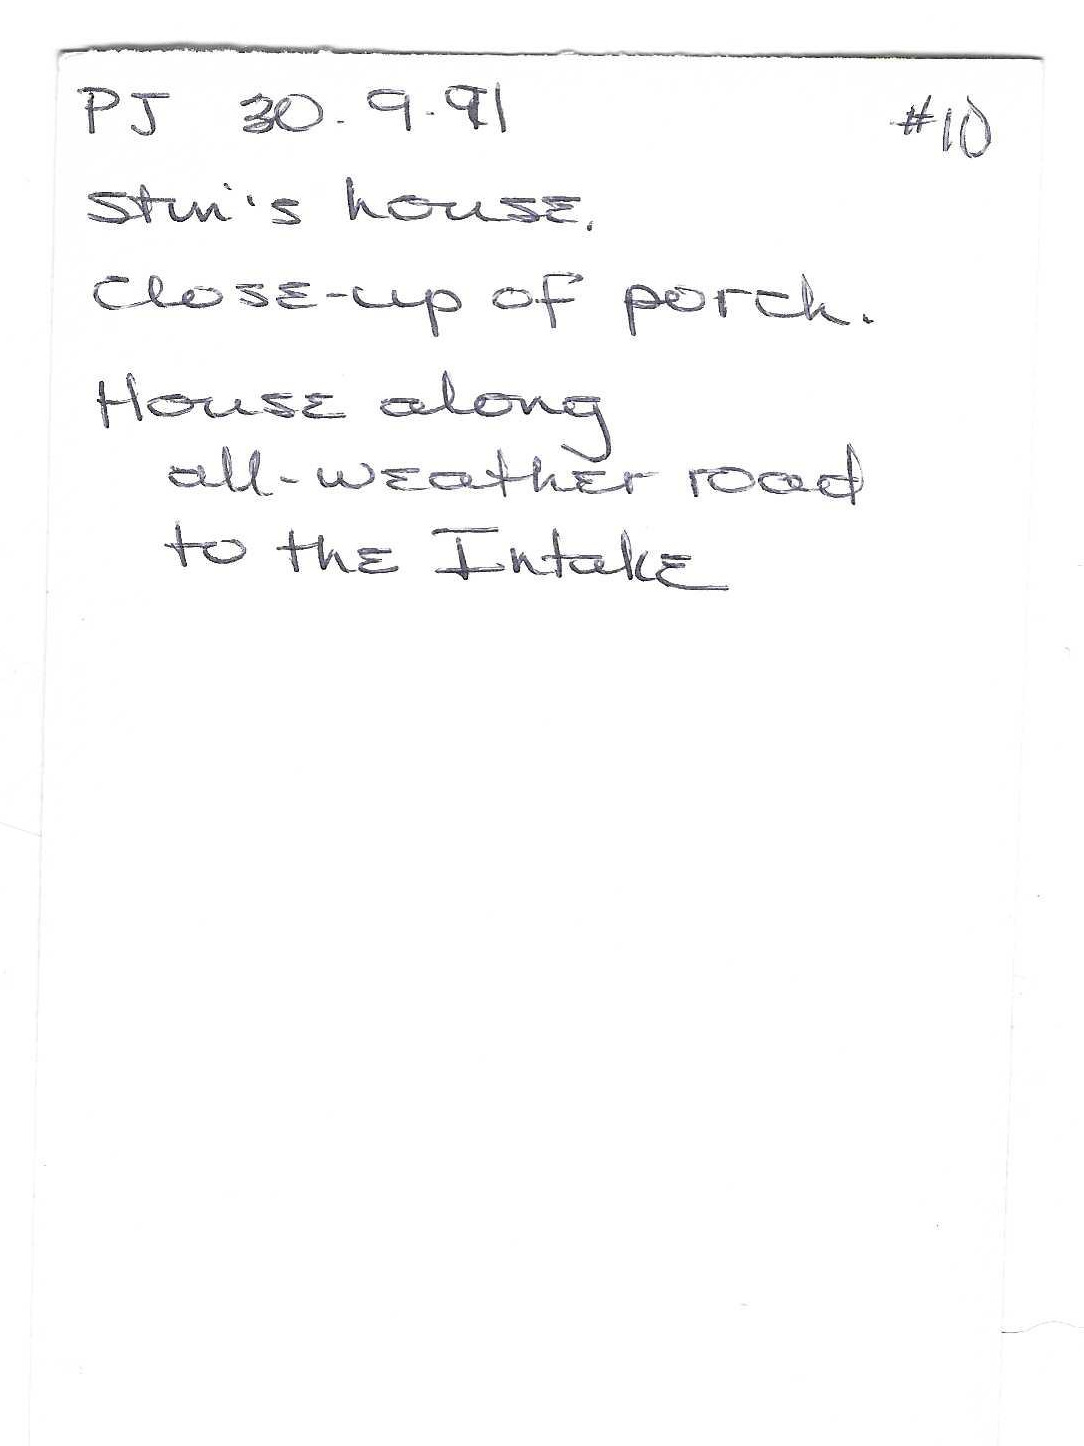 PJ 30.9.91 #10
house.
Close-up of porch.
House along
all-weather road
to the Intake